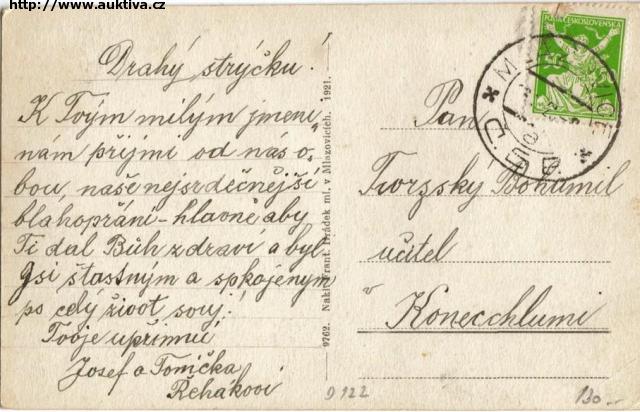 http://www.auktiva.cz
Drahý strýčku!
K Tvým milým jmeni-
nam přijmi od nás o-
bou, naše nejsrdečnější
blahopřání - hlavně aby
Ti dal Bůh zdraví a byl
jsi šťastným a spokojeným
po celý život svůj!
Tvoje upřímní
Josef a Tonička
Řehákovi
9762. Nakl. Frant. Hrádek ml. v Mlazovicích. 1921.
POŠTA ČESKOSLOVENSKÁ
Pan
Tvrzský Bohumil
učitel
v
Konecchlumi
9122
130.-